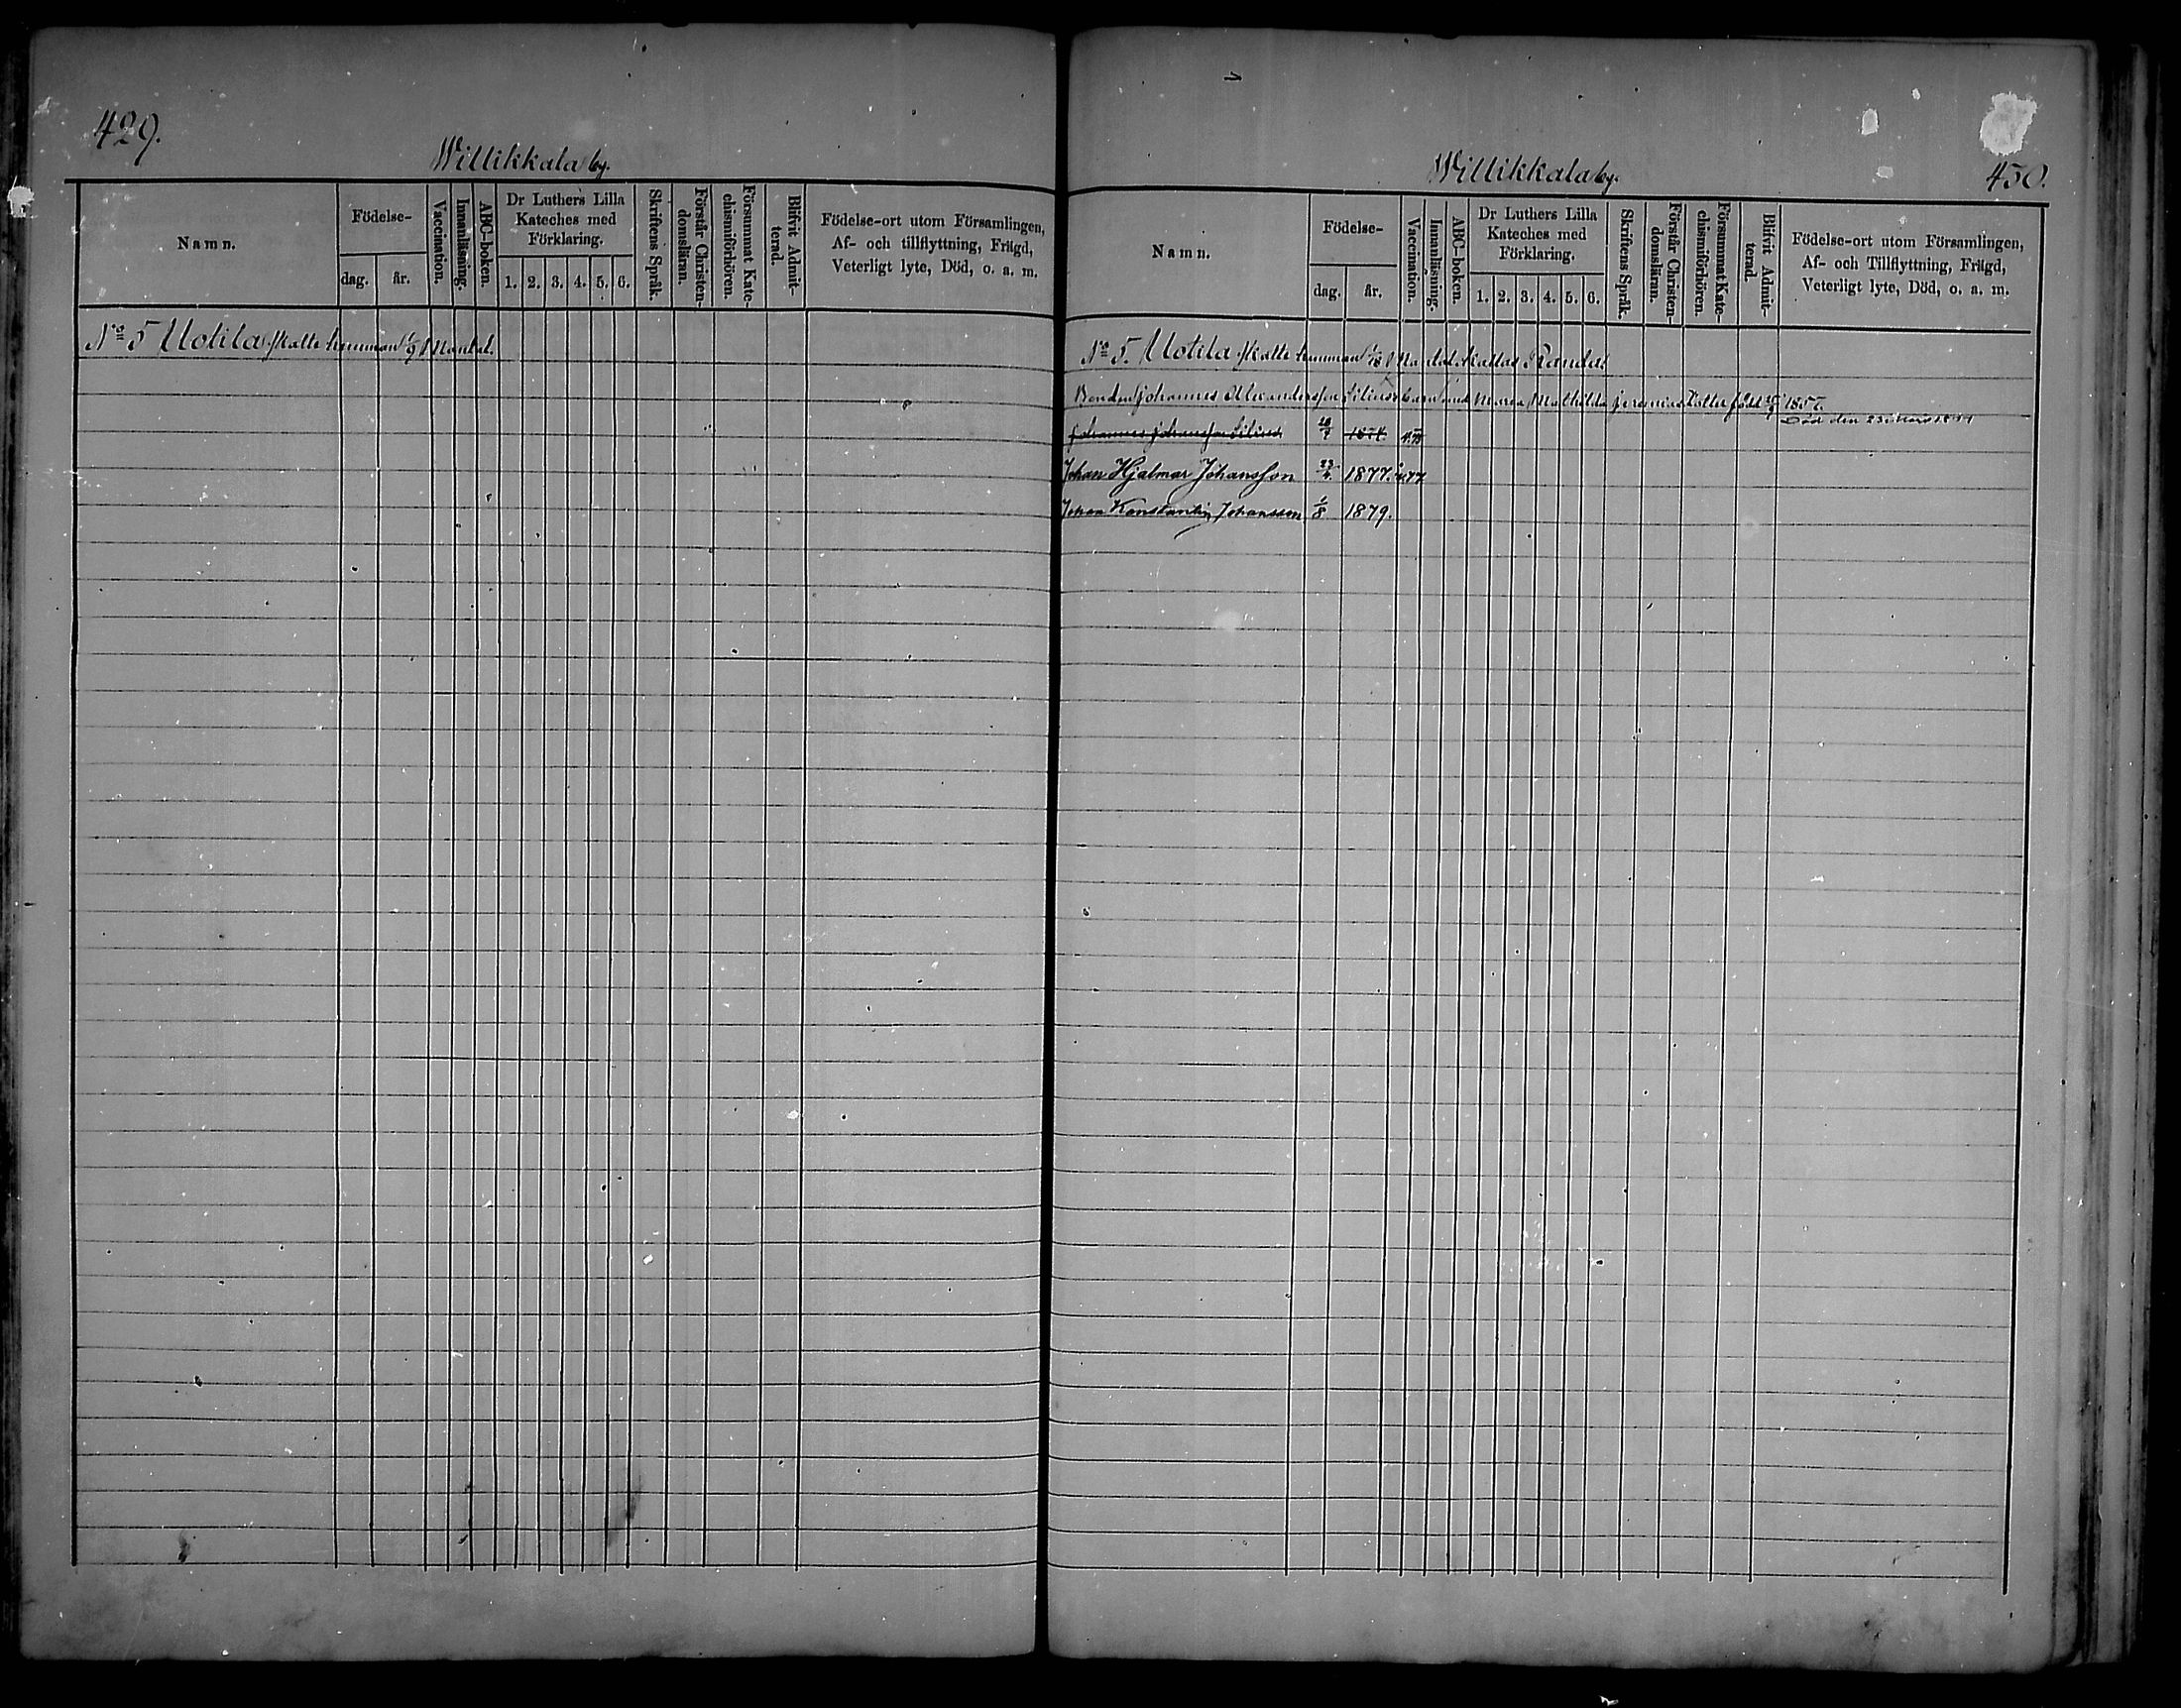 429.
Willikkala by.
Namn.
Födelse-
dag. år.
Vaccination.
Innanläsning.
ABC-boken.
Dr Luthers Lilla Kateches med Förklaring.
1. 2. 3. 4. 5. 6.
Skriftens Språk.
Förstår Christen-domsläran.
Försummat Kate-chismiförhören.
Blifvit Admit-terad.
Födelse-ort utom Församlingen,
Af- och tillflyttning, Frägd,
Veterligt lyte, Död, o. a. m.
No 5 Uotila Skatte hemman 1/9 Mantal.
Willikkala by.
450.
Namn.
Födelse-
dag. år.
Vaccination.
Innanläsning.
ABC-boken.
Dr Luthers Lilla Kateches med Förklaring.
1. 2. 3. 4. 5. 6.
Skriftens Språk.
Förstår Christen-domsläran.
Försummat Kate-chismiförhören.
Blifvit Admit-terad.
Födelse-ort utom Församlingen,
Af- och Tillflyttning, Frägd,
Veterligt lyte, Död, o. a. m.
No 5. Uotila Skatte hemman 1/18 Mantal. Kallas Randas.
Bonden Johannes Alexandersson Silius barn med Maria Mathilda Jeremias dotter född 1857.
Johannes Johansson Silius 1874. Död den 23
Johan Hjalmar Johansson 23/4 1877. 77
Johan Konstantin Johansson 1/8 1879.